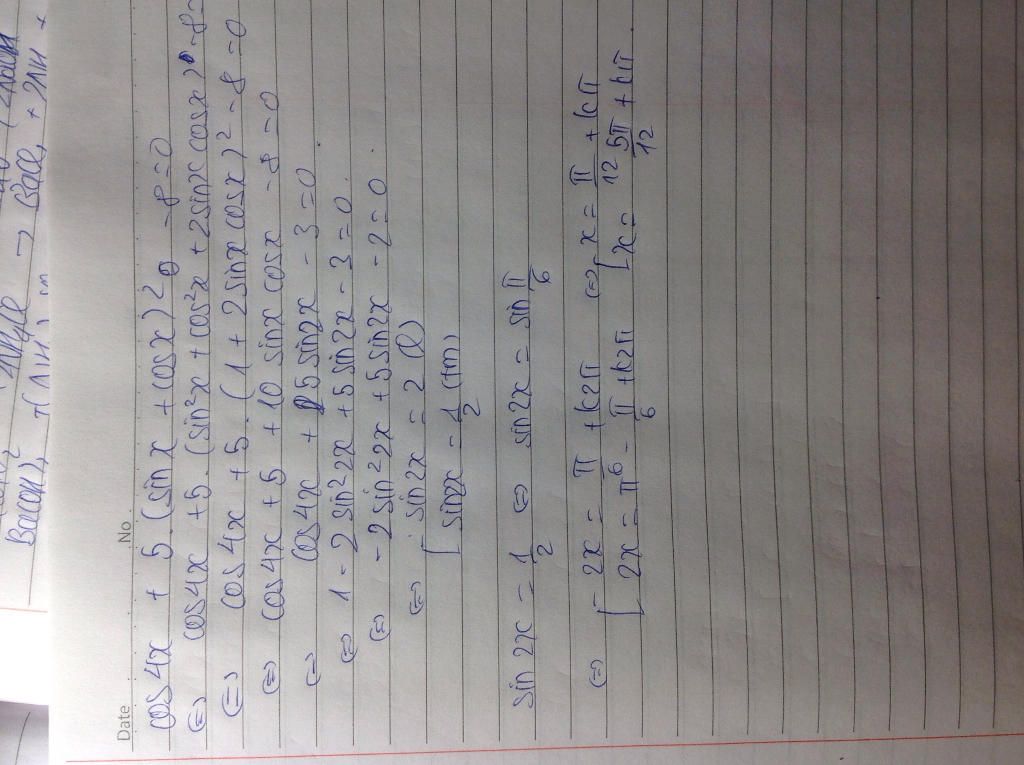 Date No.
cos4x + 5.(sinx + cosx)² - 8 = 0
⇔ cos4x + 5.(sin²x + cos²x + 2sinx cosx) - 8 =
⇔ cos4x + 5.(1 + 2sinx cosx)² - 8 = 0
⇔ cos4x + 5 + 10 sinx cosx - 8 = 0
⇔ cos4x + 5 sin2x - 3 = 0
⇔ 1 - 2sin²2x + 5sin2x - 3 = 0
⇔ -2sin²2x + 5sin2x - 2 = 0
⇔ [ sin2x = 2 (l)
[ sin2x = 1/2 (tm)
sin2x = 1/2 ⇔ sin2x = sin π/6
⇔ [ 2x = π/6 + k2π ⇔ [ x = π/12 + kπ
[ 2x = π - π/6 + k2π [ x = 5π/12 + kπ.